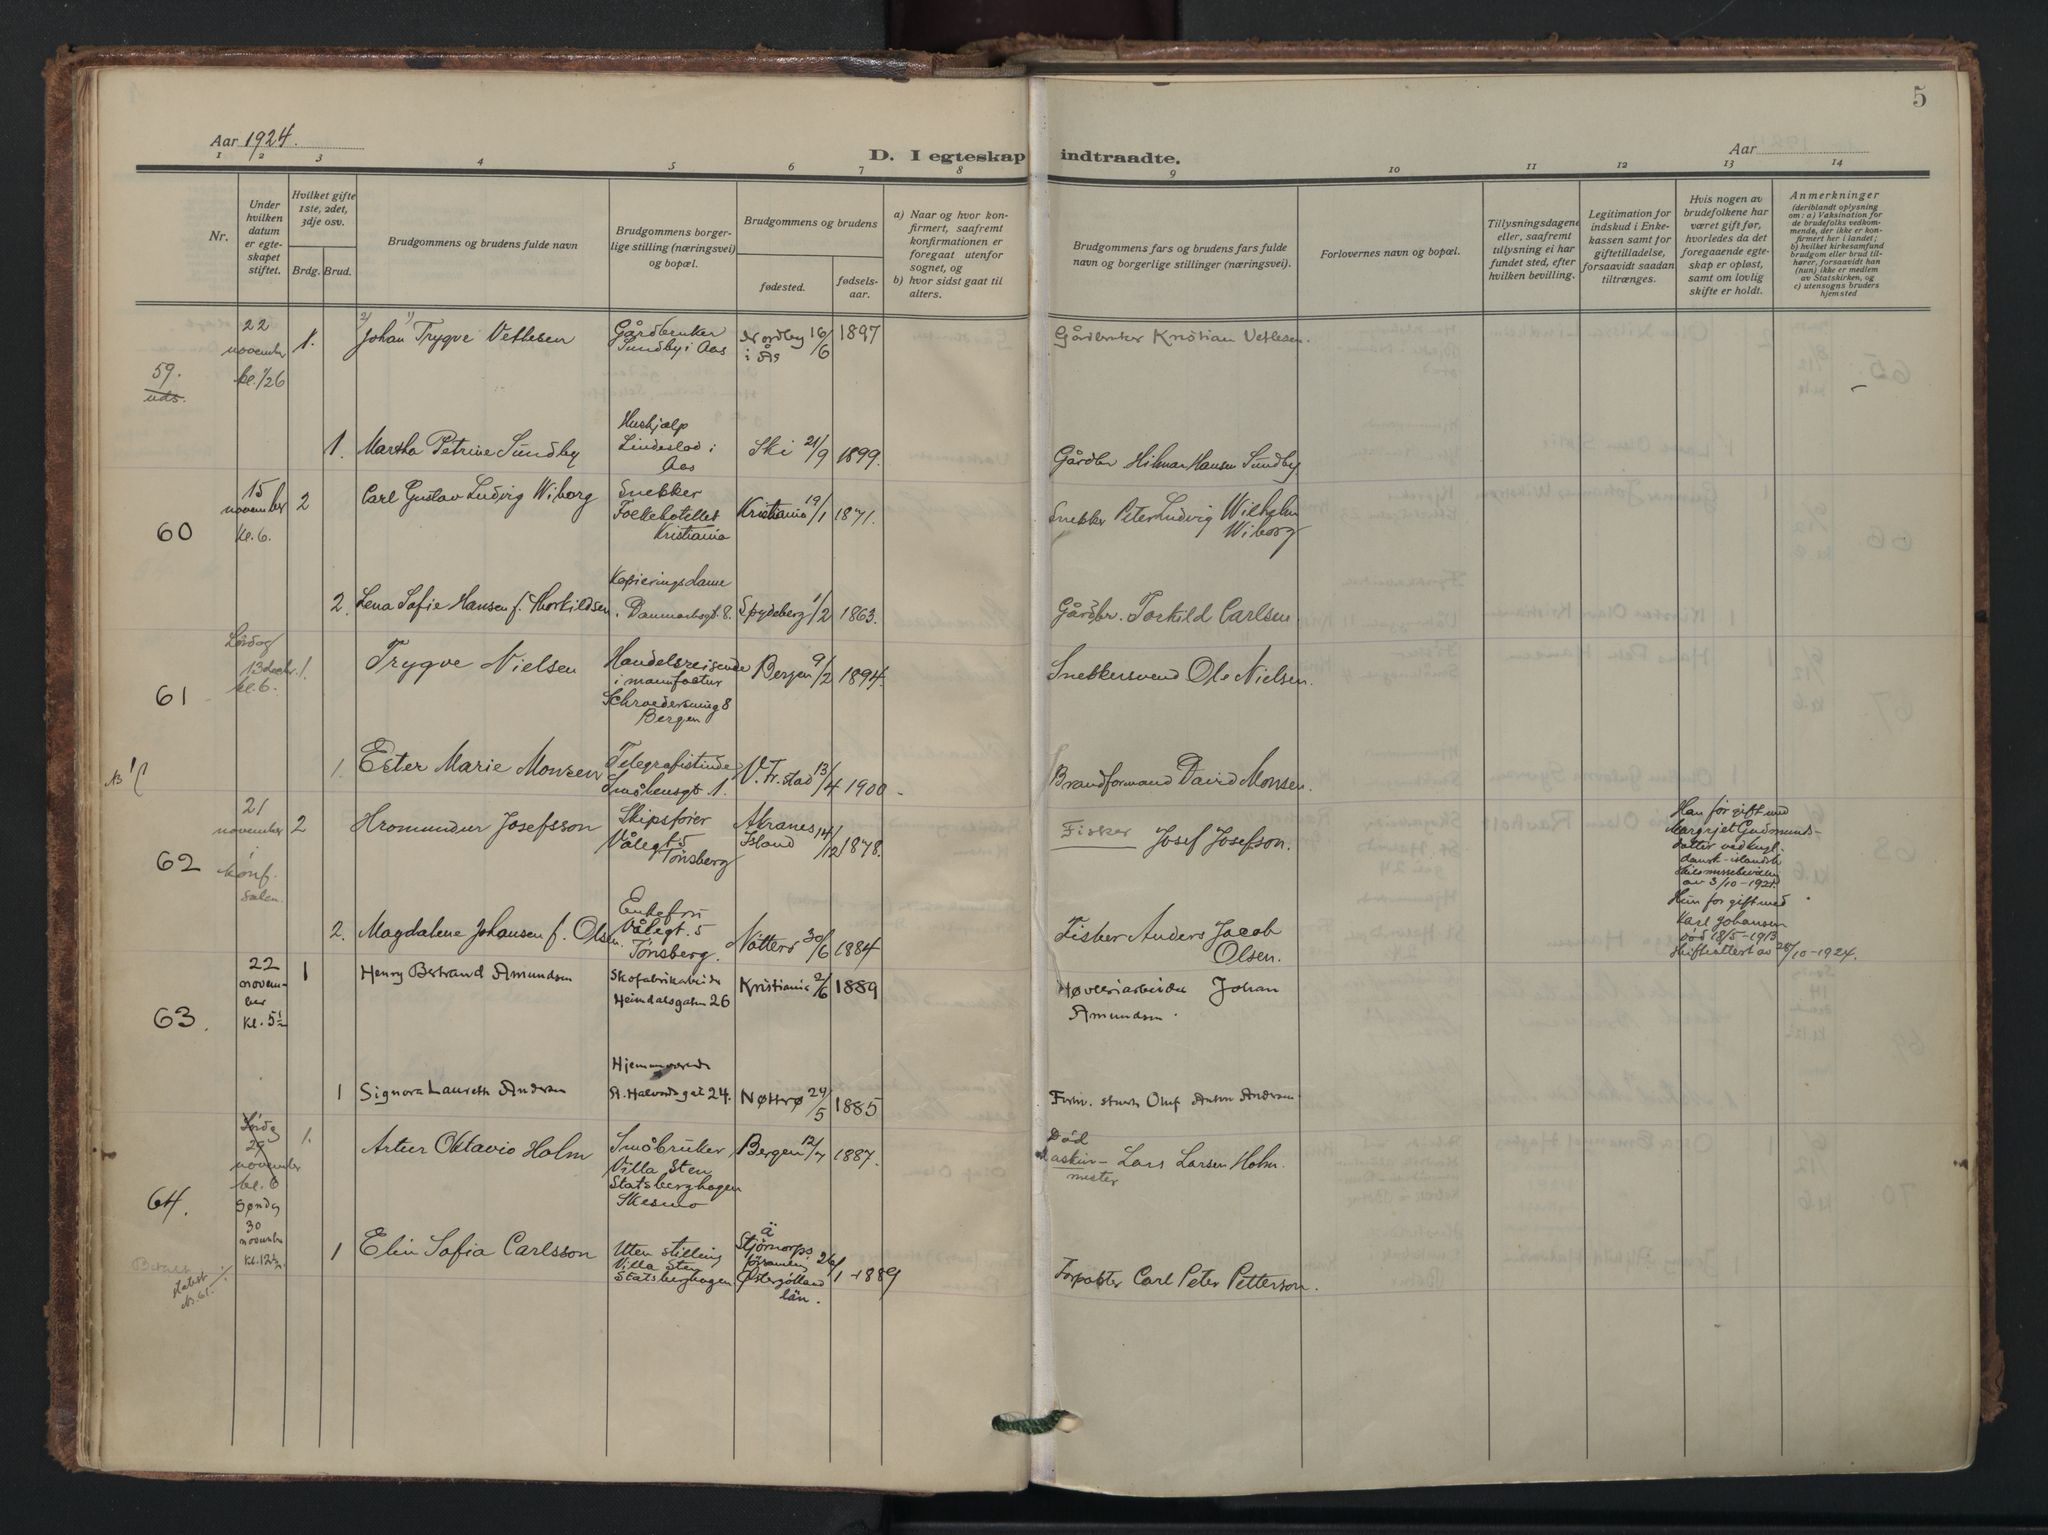 5
Aar 1924.
D. I egteskap indtraadte.
Aar
1 2 3 4 5 6 7 8 9 10 11 12 13 14
Nr.
Under
hvilken
datum
er egte-
skapet
stiftet.
Hvilket gifte
1ste, 2det,
3dje osv.
Brdg. Brud.
Brudgommens og brudens fulde navn
Brudgommens borger-
lige stilling (næringsvei)
og bopæl.
Brudgommens og brudens
fødested.
fødsels-
aar.
a) Naar og hvor kon-
firmert, saafremt
konfirmationen er
foregaat utenfor
sognet, og
b) hvor sidst gaat til
alters.
Brudgommens fars og brudens fars fulde
navn og borgerlige stillinger (næringsvei).
Forlovernes navn og bopæl.
Tillysningsdagene
eller, saafremt
tillysning ei har
fundet sted, efter
hvilken bevilling.
Legitimation for
indskud i Enke-
kassen samt for
giftetilladelse,
forsaavidt saadan
tiltrænges.
Hvis nogen av
brudefolkene har
været gift før,
hvorledes da det
foregaaende egte-
skap er opløst,
samt om lovlig
skifte er holdt.
Anmerkninger
(deriblandt oplysning
om: a) Vaksination for
de brudefolks vedkom-
mende, der ikke er kon-
firmert her i landet;
b) hvilket kirkesamfund
brudgom eller brud til-
hører, forsaavidt han
(hun) ikke er medlem
av Statskirken, og
c) utensogns bruders
hjemsted
59.
uds.
22
november
1.
2) 1)
Johan Trygve Vetlesen
Gårdbruker
Sundby i Aas
Nordby
i Ås
16/6
1897
Gårdbruker Kristian Vetlesen.
1. Martha Petrine Sundby
Hushjælp
i
Aas
Ski 21/9 1899.
Gårdbr Hilmar Hansen Sundby
60
15
november
kl. 6.
2
Carl Gustav Ludvig Wiborg
Snekker
Folkehotellet
Kristiania
Kristiania 19/1 1871.
Snekker Peter Ludvig Wilhelm
Wiborg
2. Lena Sofie Hansen f. Thorkildsen
Kopieringsdame
Danmarksgt. 8.
Spydeberg 1/2 1863.
Gårdbr. Torkild Carlsen
61
Lørdag
13 decbr.
kl. 6.
1.
Trygve Nielsen
Handelsreisende
i manufactur
8
Bergen
Bergen 9/2 1894.
Snekkersvend Ole Nielsen.
1. Ester Marie Monsen
Telegrafistinde
1.
V. Fr.stad 13/4 1900
Brandformand David Monsen.
62
21
november
konf.
salen.
2
Hromundur Josefsson
Skipsfører
Vålegt 5
Tønsberg
Akranes
Island
14/12 1878.
Fisker Josef Josefson.
Han før gift med
Margrjet Gudmunds-
datter ved kngl.
dansk-islandsk
skilsmissebevilling
av 3/10-1921.
2. Magdalene Johansen f. Olsen.
Enkefru
Vålegt. 5
Tønsberg.
Nøtterø 30/6 1884
Fisker Anders Jacob
Olsen.
Hun før gift med
Karl Johansen
død 18/5-1913
Skifteattest av 28/10-1924.
63.
22
novem-
ber
kl. 5½
1
Henry Bertrand Amundsen
Skofabrikarbeider
Heimdalsgaten 26
Kristiania 2/6 1889
Høvleriarbeider Johan
Amundsen.
1 Signora Laureth Andersen
Hjemmeværende
St. Halvardsgat 24.
Nøtterø 24/5 1885
Oluf Anton Andersen
64.
Lørdag
29
november
kl. 6
Søndag
30
november
kl. 12½
1.
Artur Oktavio Holm
Småbruker
Villa Sten
Statsberghagen
Skesmo
Bergen 12/7 1887.
Død
Maskin-
mester
Lars Larsen Holm.
1 Elin Sofia Carlsson
Uten stilling
Villa Sten
Statsberghagen
Ä
Stjørnorps
församling
Østergötland
län.
26/1 1889
Forpakter Carl Peter Petterson.